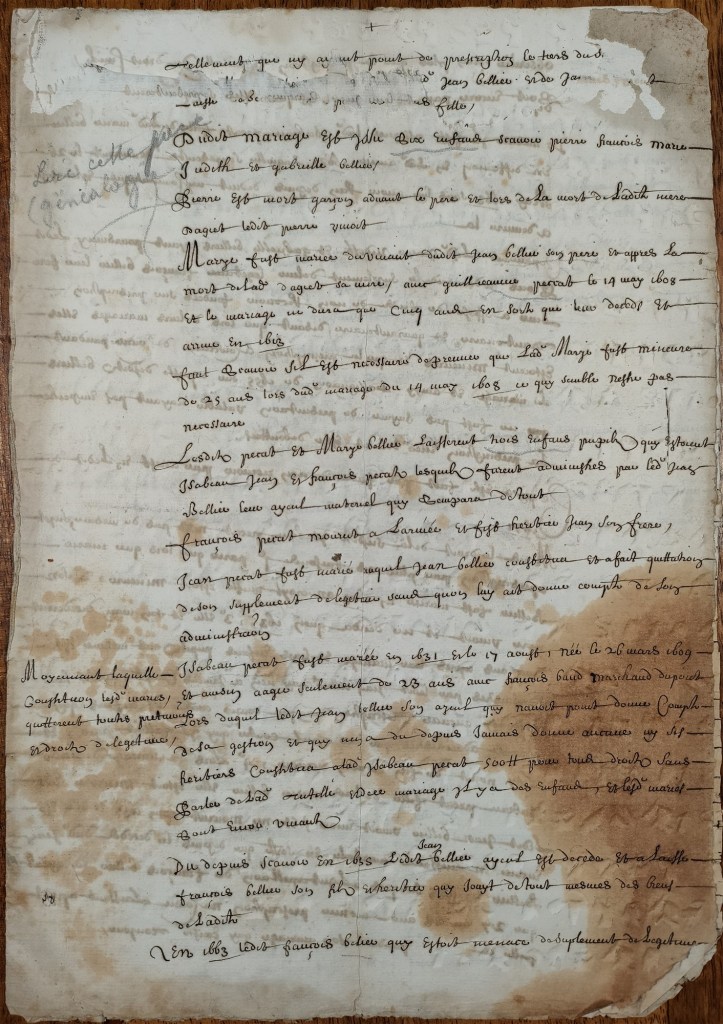 +
Tellement que ny aiant point de prescription le tiers du
Jean bellier et de
fille,
Lire cette pièce
(généalogie)
Dudit mariage Est Issu Six Enfans scavoir pierre françois marie
Judith et gabrielle bellier,
Pierre Est mort garçon advant le pere et lors de La mort de Ladite mere
Daguet ledit pierre vivoit
Marye fust mariee du vivant dudit Jean bellier son pere et appres La
mort de Lad. daguet sa mere, avec guilleaume peccat le 14 may 1608
Et le mariage ne dura que Cinq ans En sorte que leur deceds Est
arrive En 1613
faut Scavoir sil Est necessaire de preuver que Lad. Marye fust mineure
de 25 ans lors dud. mariage du 14 may 1608 ce quy semble nestre pas
necessaire
Lesdits pecat Et Marye bellier Laisserent trois Enfans pupils quy Estoient
Isabeau Jean et françois pecat lesquels furent administres par led. Jean
Bellier leur ayeul maternel quy Sempara de tout
françois pecat mourut a Larmée et fist heritier Jean Son frere,
Jean pecat fust marié auquel Jean bellier constitua et a fait quittation
de son supplement de legitime sans quon luy ait donne compte de son
administration
Isabeau pecat fust mariée en 1631 Et le 17 aoust, née le 26 mars 1609
Moyennant laquelle
Constitution lesd. maries,
quitterent toutes pretentions
et droits de legitime,
Et ainsin aagée seulement de 23 ans avec françois baud marchand du pont
Lors duquel ledit Jean bellier son ayeul quy navoit point donne Compte
de sa gestion Et quy nen a du depuis Jamais donne aucune ny ses
heritiers Constitua a lad. Isabeau pecat 500tt pour tous droits Sans
Parler de Lad. tutelle et de ce mariage Il y a des Enfans, et lesd. maries
Sont Encor vivants
Du depuis scavoir En 1635 Ledit Jean bellier ayeul Est decede Et a Laisse
françois bellier son fils et heritier quy Jouyt de tout mesmes des biens
de Ladite
En 1663 ledit françois belier quy Estoit menace de suplement de Legitime